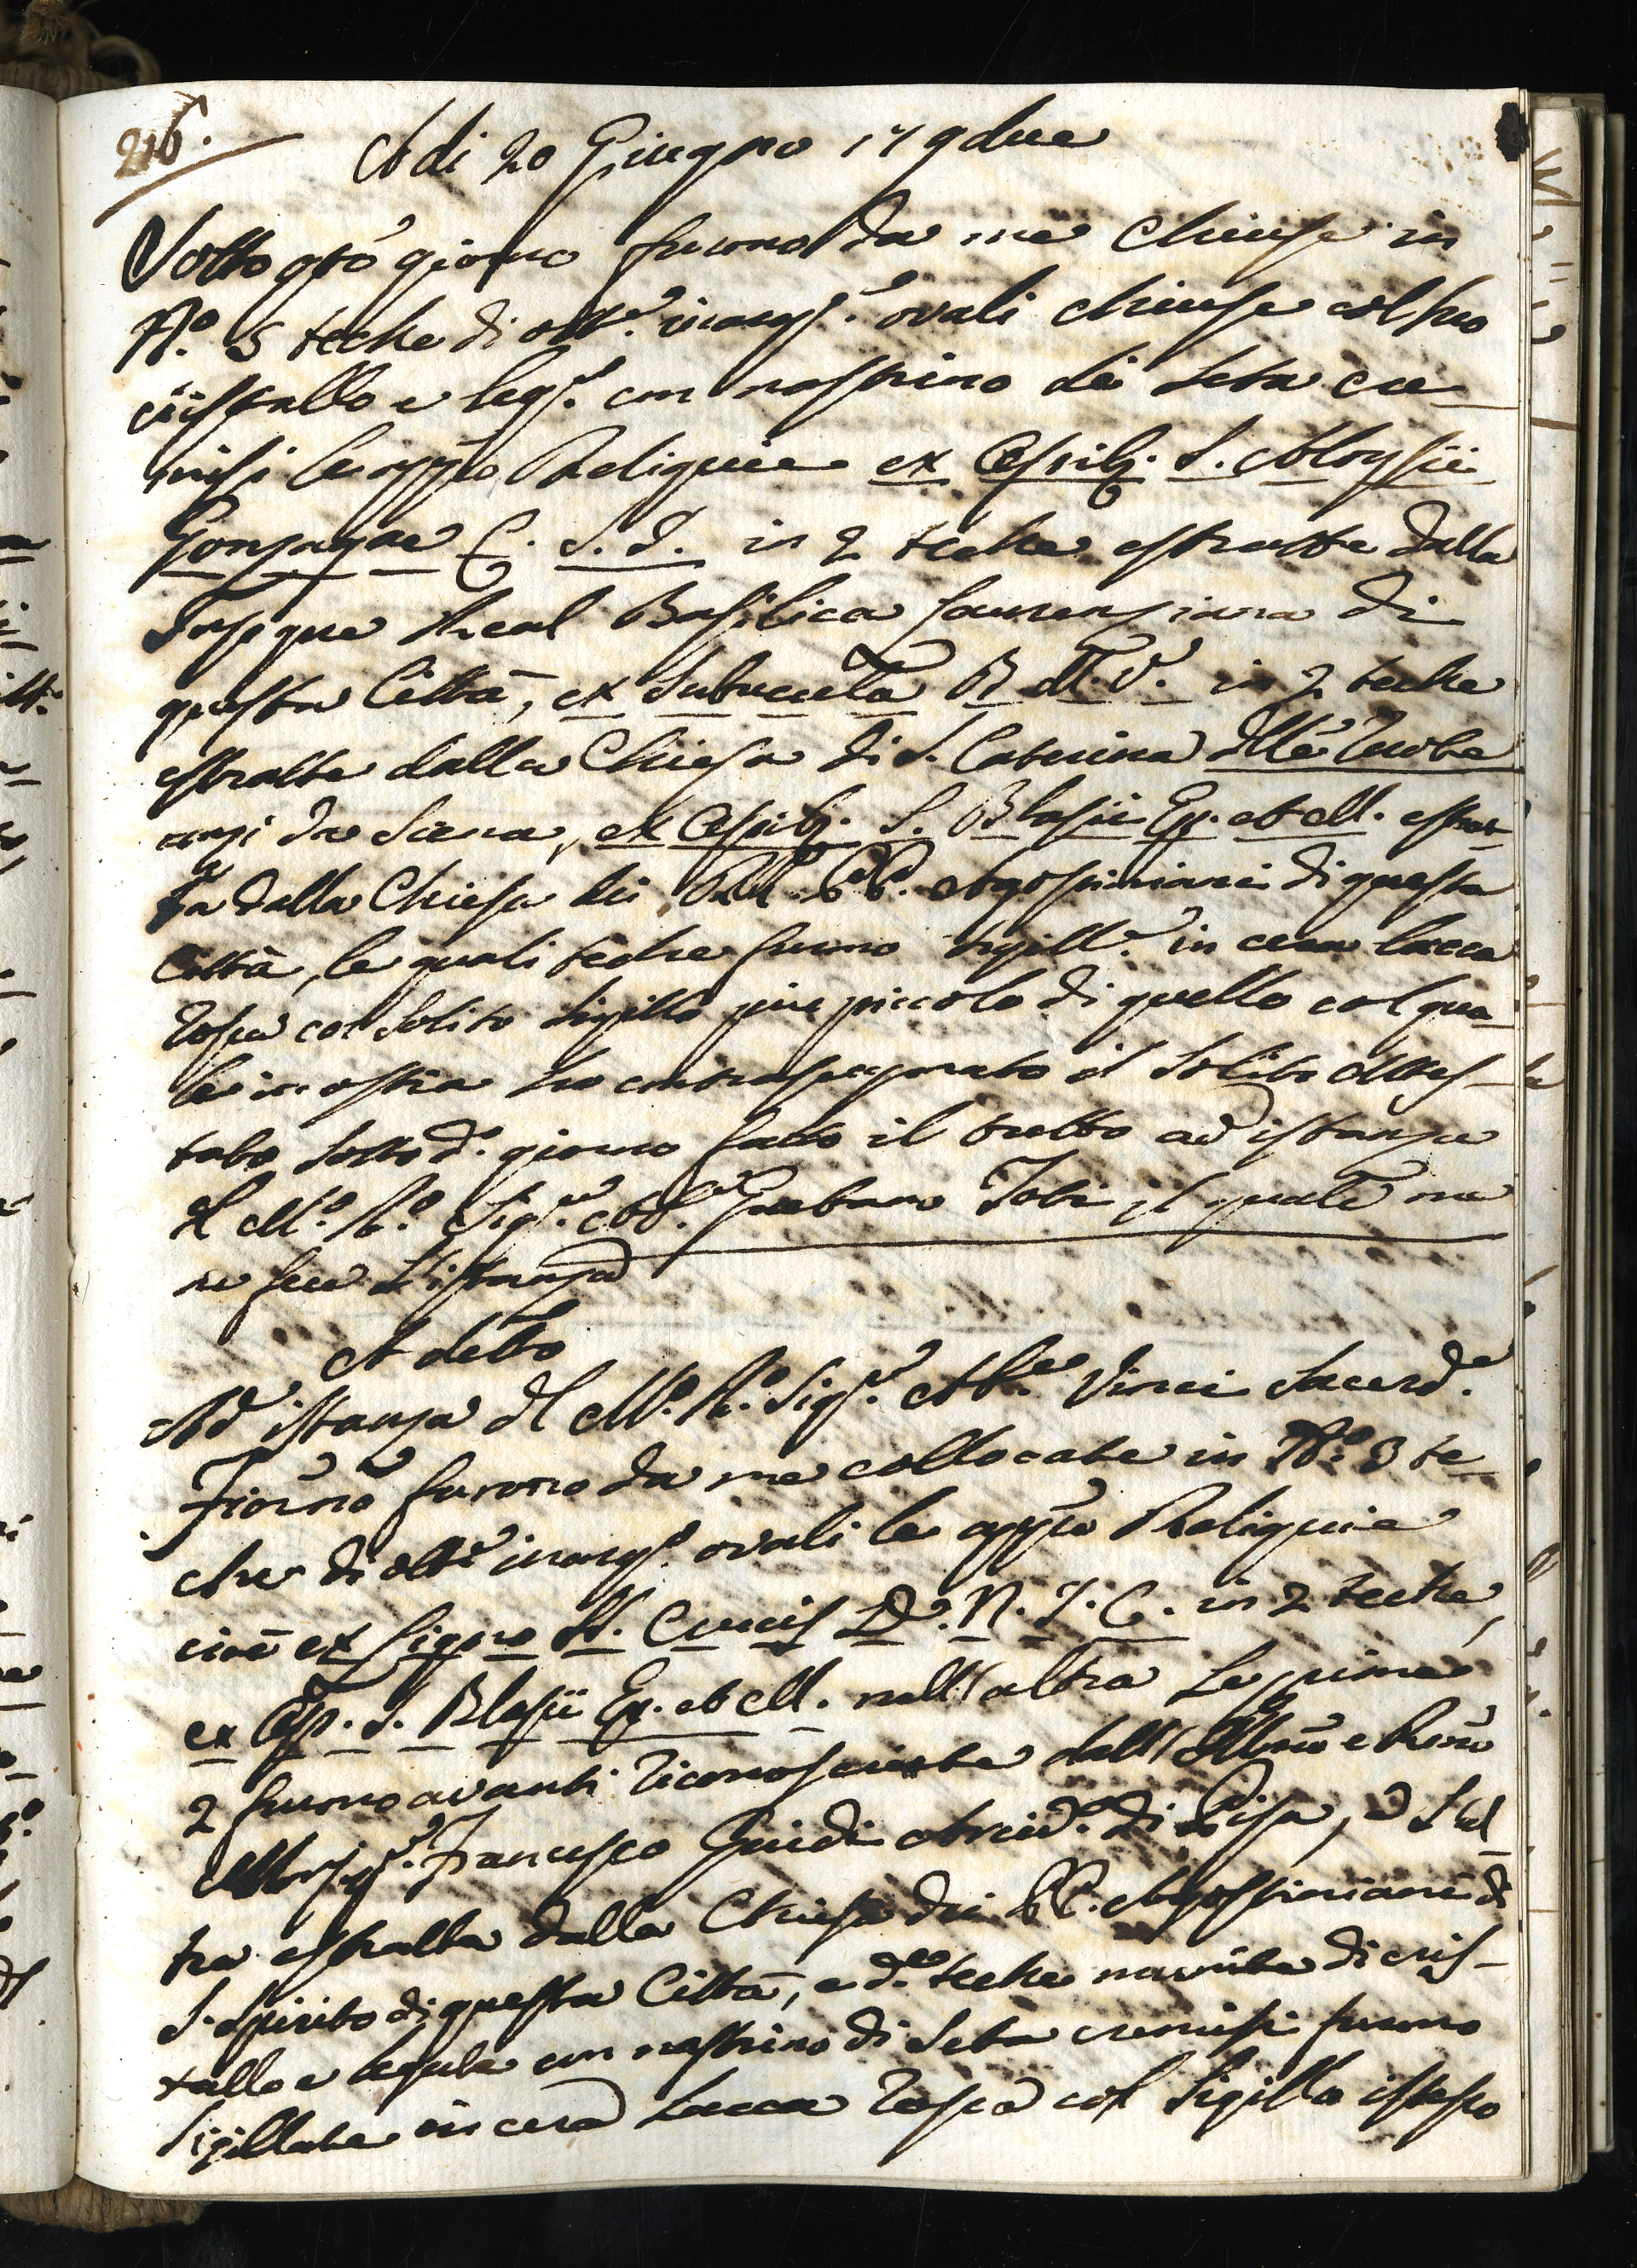 216.
A di 20 Giugno 179due
Sotto gto giorno furono da me chiuse in
N.o 5 teche di ott.e inarg.e ovali chiuse col suo
cristallo e leg.e con nastrino di seta cre-
misi le appiè Reliquie ex Cinerib. S. Aloysii
Gonzagae C. S. J. in 2 teche estratte dalla
Insigne Real Basilica Laurenziana di
questa Città, ex Subucula B. M. V. in 2 teche
estratte dalla Chiesa di S. Caterina
da Siena, ex S. Blasii Ep. et M. estrat-
ta dalla Chiesa dei RR. PP. Agostiniani di questa
Città, le quali teche furono sigill.e in cera lacca
rossa col solito sigillo più piccolo di quello col qua-
le in ostia ho contrassegnato il solito Attes-
tato sotto d.o giorno fatto il tutto ad istanza
del M.o R.o Sig.e Ab.e Gaetano Tobi il quale me
ne fece l'istanza
A detto
Ad istanza del M.o R.o Sig.e Ab.e Vinci Sacerd.e
Fiorno furono da me collocate in N.o 3 te-
che di otte inarg.e ovali le appiè Reliquie
cioè ex Ligno SS. Crucis D. N. J. C. in 2 teche,
ex S. Blasii Ep. et M. nell'altra Le prime
2 furono avanti riconosciute dall'Illmo e Rmo
Monsig.e Francesco Guidi Arciv.o di Pisa, e l'al-
tra estratta dalla Chiesa dei PP. Agostiniani di
S. Spirito di questa Città, e d.e teche munite di cris-
tallo e legate con nastrino di seta cremisi furono
sigillate in cera lacca rossa col sigillo istesso